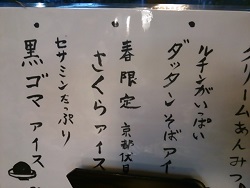 クリームあんみつ
ルチンがいっぱい
ダッタンそばアイ
春限定 京都伏見
さくらアイス
セサミンたっぷり
黒ゴマ アイス